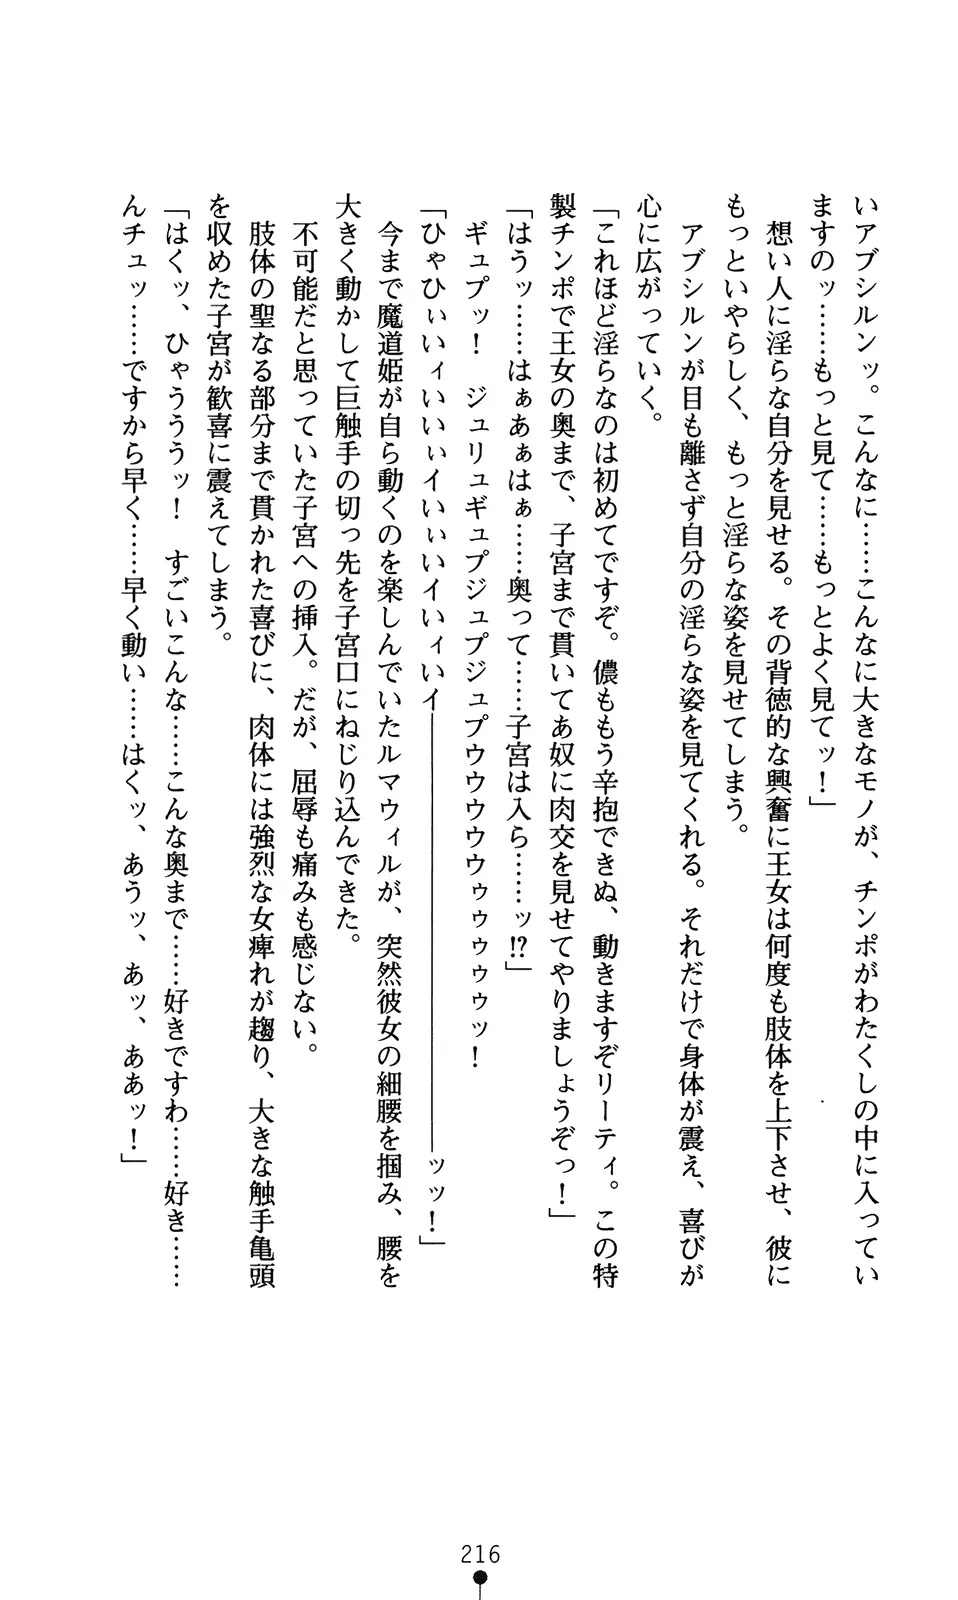 いアブシルンッ。こんなに……こんなに大きなモノが、チンポがわたくしの中に入ってい
ますのッ……もっと見て……もっとよく見てッ！」
　想い人に淫らな自分を見せる。その背徳的な興奮に王女は何度も肢体を上下させ、彼に
もっといやらしく、もっと淫らな姿を見せてしまう。
　アブシルンが目も離さず自分の淫らな姿を見てくれる。それだけで身体が震え、喜びが
心に広がっていく。
「これほど淫らなのは初めてですぞ。儂ももう辛抱できぬ、動きますぞリーティ。この特
製チンポで王女の奥まで、子宮まで貫いてあ奴に肉交を見せてやりましょうぞっ！」
「はうッ……はぁあぁはぁ……奥って……子宮は入ら……ッ!?」
　ギュプッ！　ジュリュギュプジュプジュプウウウウウゥゥゥゥゥッ！
「ひゃひぃいィいいぃイいぃいイいィいイ――――――――――――ッッ！」
　今まで魔道姫が自ら動くのを楽しんでいたルマウィルが、突然彼女の細腰を掴み、腰を
大きく動かして巨触手の切っ先を子宮口にねじり込んできた。
　不可能だと思っていた子宮への挿入。だが、屈辱も痛みも感じない。
　肢体の聖なる部分まで貫かれた喜びに、肉体には強烈な女痺れが趨り、大きな触手亀頭
を収めた子宮が歓喜に震えてしまう。
「はくッ、ひゃううぅッ！　すごいこんな……こんな奥まで……好きですわ……好き……
んチュッ……ですから早く……早く動い……はくッ、あうッ、あッ、ああッ！」
216